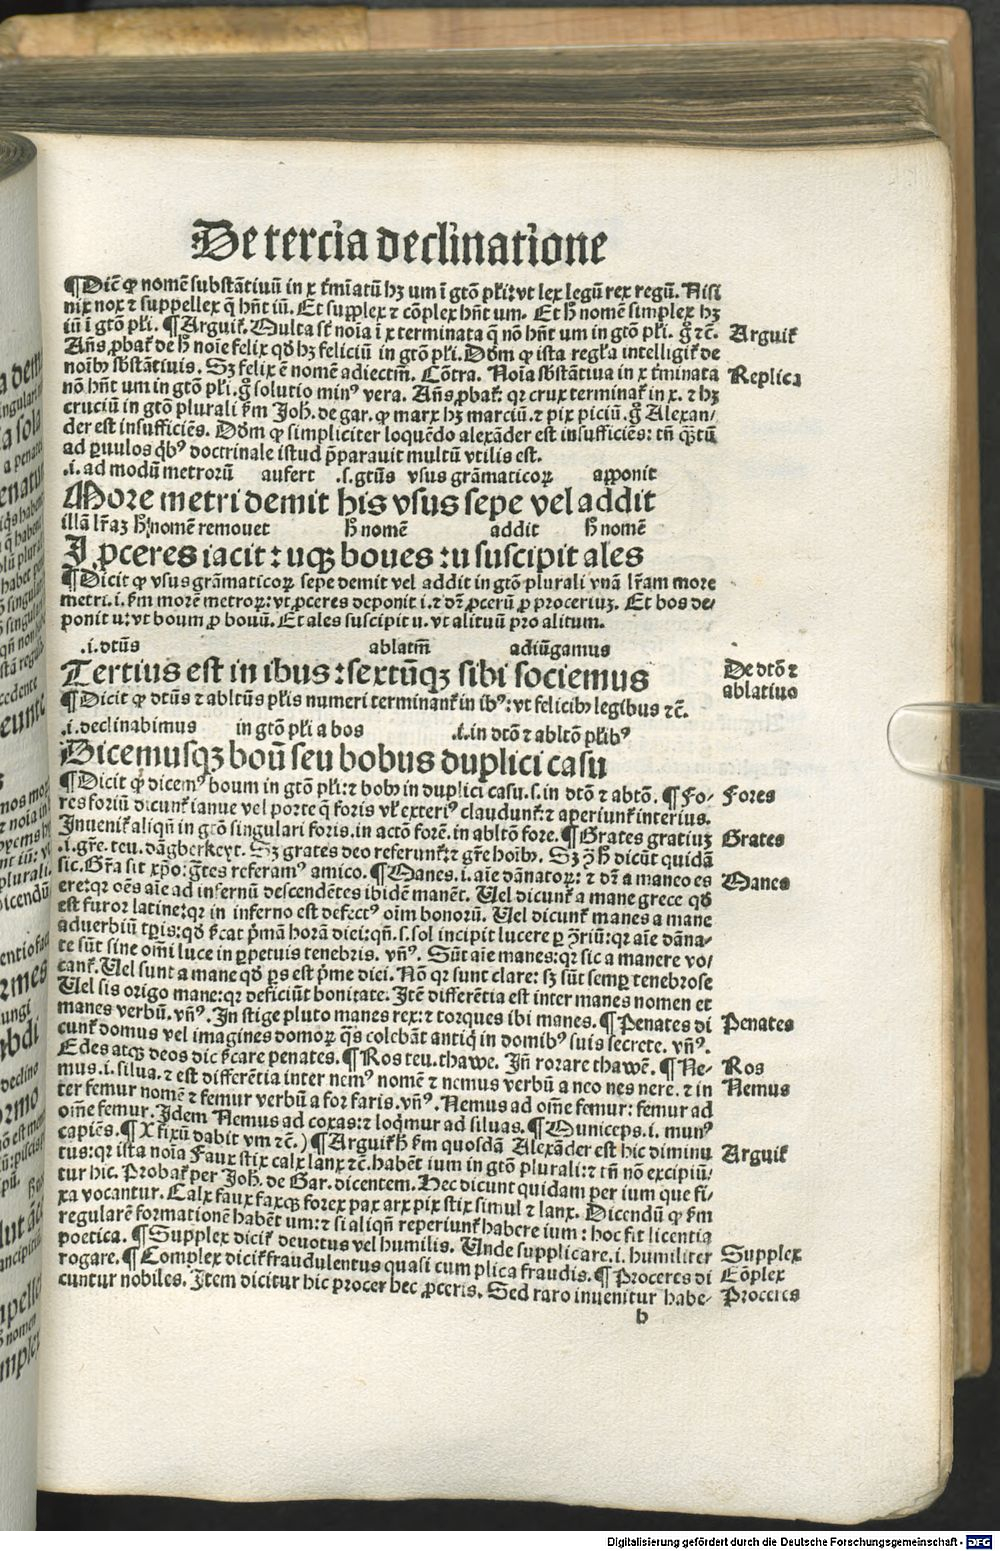 De tercia declinatione
¶Dic̄ ꝙ nomē substātiuū in x t̄miatū hꝫ um ī gtō pl̄i: vt lex legū rex regū. Nisi
nix nox ⁊ suppellex q̄ hn̄t iū. Et supplex ⁊ cōplex hn̄t um. Et h̄ nomē simplex hꝫ
iū ī gtō pl̄i. ¶Arguit̄. Multa st̄ noīa ī x terminata q̄ nō hn̄t um in gtō pl̄i. gͦ ⁊c̄.
Arguit̄
Añs ꝓbat̄ de h̄ noīe felix qđ hꝫ feliciū in gtō pl̄i. Dōm ꝙ ista regl̄a intelligit̄ de
noībꝰ sbstātiuis. Sꝫ felix ē nomē adiectm̄. Cōtra. Noīa sbstātiua in x t̄minata
Replica
nō hn̄t um in gtō pl̄i. gͦ solutio minꝰ vera. Añs ꝓbat̄: qꝛ crux terminat̄ in x. ⁊ hꝫ
cruciū in gtō plurali fm̄ Joh̄. de gar. ꝙ marx hꝫ marciū. ⁊ pix piciū. gͦ Alexan/
der est insufficiēs. Dōm ꝙ simpliciter loquēdo alexāder est insufficiēs: tn̄ q̄tū
ad ꝑuulos q̄bꝰ doctrinale istud p̄parauit multū vtilis est.
.i. ad modū metrorū aufert .s. gtūs vsus grāmaticoꝝ apponit
More metri demit his vsus sepe vel addit
illā lr̄aꝫ h̄ nomē remouet h̄ nomē addit h̄ nomē
I ꝓceres iacit: uqꝫ boues: u suscipit ales
¶Dicit ꝙ vsus grāmaticoꝝ sepe demit vel addit in gtō plurali vnā lr̄am more
metri. i. fm̄ morē metroꝝ: vt ꝓceres deponit i. ⁊ dr̄ ꝓcerū ꝓ proceriuꝫ. Et bos de/
ponit u: vt boum ꝓ bouū. Et ales suscipit u. vt alituū pro alitum.
.i. dtūs ablatm̄ adiūgamus
Tertius est in ibus: sextūqꝫ sibi sociemus
De dtō ⁊
ablatiuo
¶Dicit ꝙ dtūs ⁊ abltūs pl̄is numeri terminant̄ in ibꝰ: vt felicibꝰ legibus ⁊c̄.
.i. declinabimus in gtō pl̄i a bos .s. in dtō ⁊ abltō pl̄ibꝰ
Dicemusqꝫ boū seu bobus duplici casu
¶Dicit ꝙ dicemꝰ boum in gtō pl̄i: ⁊ bobꝰ in duplici casu. s. in dtō ⁊ abtō. ¶Fo/
Fores
res foriū dicunt̄ ianue vel porte q̄ foris vl̄ exteriꝰ claudunt̄: ⁊ aperiunt̄ interius.
Inuenit̄ aliqn̄ in gtō singulari foris. in actō forē. in abltō fore. ¶Grates gratiuꝫ
Grates
.i. gr̄e. teu. dāgberkeyt. Sꝫ grates deo referunt̄: ⁊ gr̄e hoībꝰ. Sꝫ ꝯ h̄ dicūt quidā
sic. Gr̄a sit xp̄o: grātes referamꝰ amico. ¶Manes. i. aīe dānatoꝝ: ⁊ dr̄ a maneo es
Manes
ere: qꝛ oēs aīe ad infernū descendētes ibidē manēt. Uel dicunt̄ a mane grece qđ
est furor latine: qꝛ in inferno est defectꝰ oīm bonorū. Uel dicunt̄ manes a mane
aduerbiū tp̄is: qđ s̄cat p̄mā horā diei: qn̄. s. sol incipit lucere ꝑ ꝯriū: qꝛ aīe dāna/
te sūt sine omī luce in ꝑpetuis tenebris. vn̄ꝰ. Sūt aīe manes: qꝛ sic a manere vo/
cant̄. Uel sunt a mane qđ ps̄ est p̄me diei. Nō qꝛ sunt clare: sꝫ sūt semꝑ tenebrose
Uel sis origo mane: qꝛ deficiūt bonitate. Itē differētia est inter manes nomen et
manes verbū. vn̄ꝰ. In stige pluto manes rex: ⁊ torques ibi manes. ¶Penates di
Penates
cunt̄ domus vel imagines domoꝝ q̄s colebāt antiq̄ in domibꝰ suis secrete. vn̄ꝰ.
Edes atqꝫ deos dic s̄care penates. ¶Ros teu. thawe. Jn̄ rorare thawē. ¶Ne/
Ros
mus. i. silua. ⁊ est differētia inter nemꝰ nomē ⁊ nemus verbū a neo nes nere. ⁊ in
Nemus
ter femur nomē ⁊ femur verbū a for faris. vn̄ꝰ. Nemus ad om̄e femur: femur ad
om̄e femur. Idem Nemus ad coxas: ⁊ loqm̄ur ad siluas. ¶Municeps. i. munꝰ
capiēs. ¶X fixū dabit vm ⁊c̄.) ¶Arguit̄ h̄ fm̄ quosdā Alexāder est hic diminu
Arguit̄
tus: qꝛ ista noīa Faux stix calx lanx ⁊c̄. habēt ium in gtō plurali: ⁊ tn̄ nō excipiū/
tur hic. Probat̄ per Joh̄. de Gar. dicentem. Hec dicunt quidam per ium que fi/
xa vocantur. Calx faux faxqꝫ forex pax arx pix stix simul ⁊ lanx. Dicendū ꝙ fm̄
regularē formationē habēt um: ⁊ si aliqn̄ reperiunt̄ habere ium: hoc fit licentia
poetica. ¶Supplex dicit̄ deuotus vel humilis. Unde supplicare. i. humiliter
Supplex
rogare. ¶Complex dicit̄ fraudulentus quasi cum plica fraudis. ¶Proceres di
Cōplex
cuntur nobiles. Item dicitur hic procer hec ꝓceris. Sed raro inuenitur habe/
Proceres
b
Digitalisierung gefördert durch die Deutsche Forschungsgemeinschaft - DFG